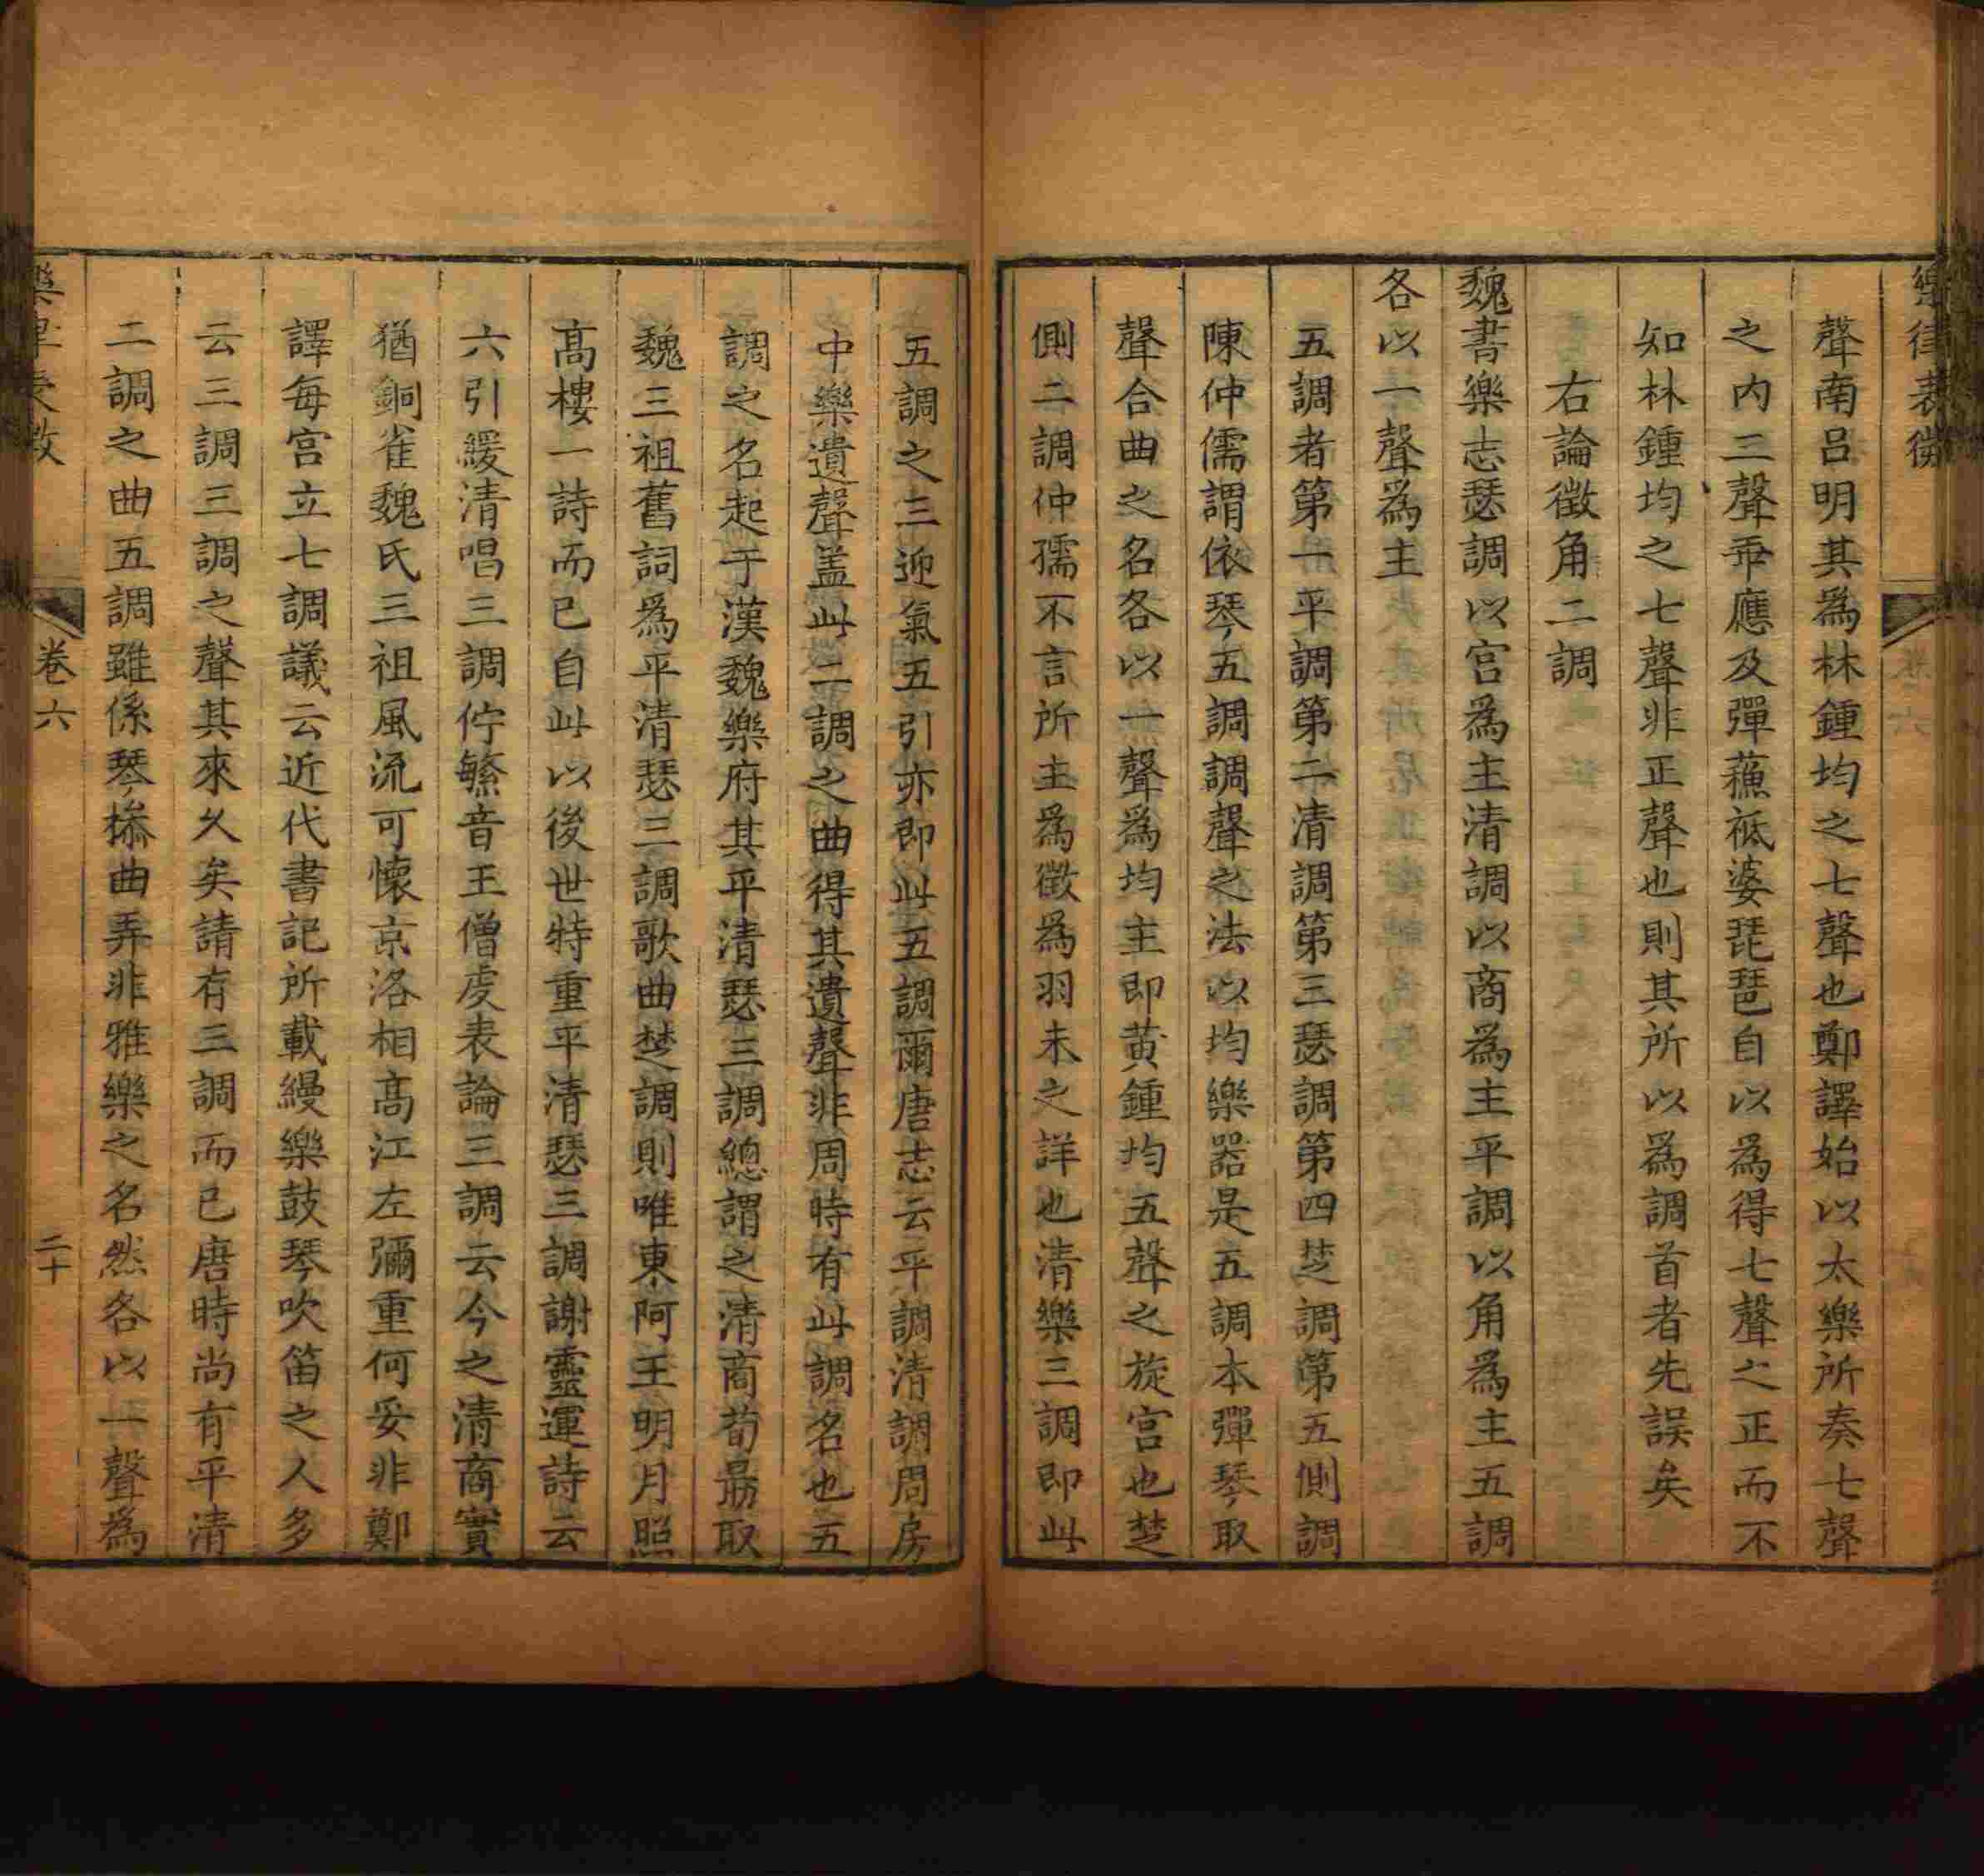 樂律表微
聲南呂明其爲林鍾均之七聲也鄭譯始以太樂所奏七聲
之内三聲乖應及彈蘓祗婆琵琶自以爲得七聲之正而不
知林鍾均之七聲非正聲也則其所以爲調首者先誤矣
右論徵角二調
魏書樂志瑟調以宫爲主清調以商爲主平調以角爲主五調
各以一聲爲主
五調者第一平調第二清調第三瑟調第四楚調第五側調
陳仲儒謂依琴五調調聲之法以均樂器是五調本彈琴取
聲合曲之名各以一聲爲均主即黄鍾均五聲之旋宫也楚
側二調仲孺不言所主爲徵爲羽未之詳也清樂三調即此
五調之三迎氣五引亦即此五調爾唐志云平調清調周房
中樂遺聲盖此二調之曲得其遺聲非周時有此調名也五
調之名起于漢魏樂府其平清瑟三調總謂之清商荀勗取
魏三祖舊詞爲平清瑟三調歌曲楚調則唯東阿王明月照
高樓一詩而已自此以後世特重平清瑟三調謝靈運詩云
六引緩清唱三調佇繁音王僧虔表論三調云今之清商實
猶銅雀魏氏三祖風流可懷京洛相高江左彌重何妥非鄭
譯每宫立七調議云近代書記所載縵樂鼓琴吹笛之人多
云三調三調之聲其來久矣請有三調而已唐時尚有平清
二調之曲五調雖係琴操曲弄非雅樂之名然各以一聲爲
卷六
二十